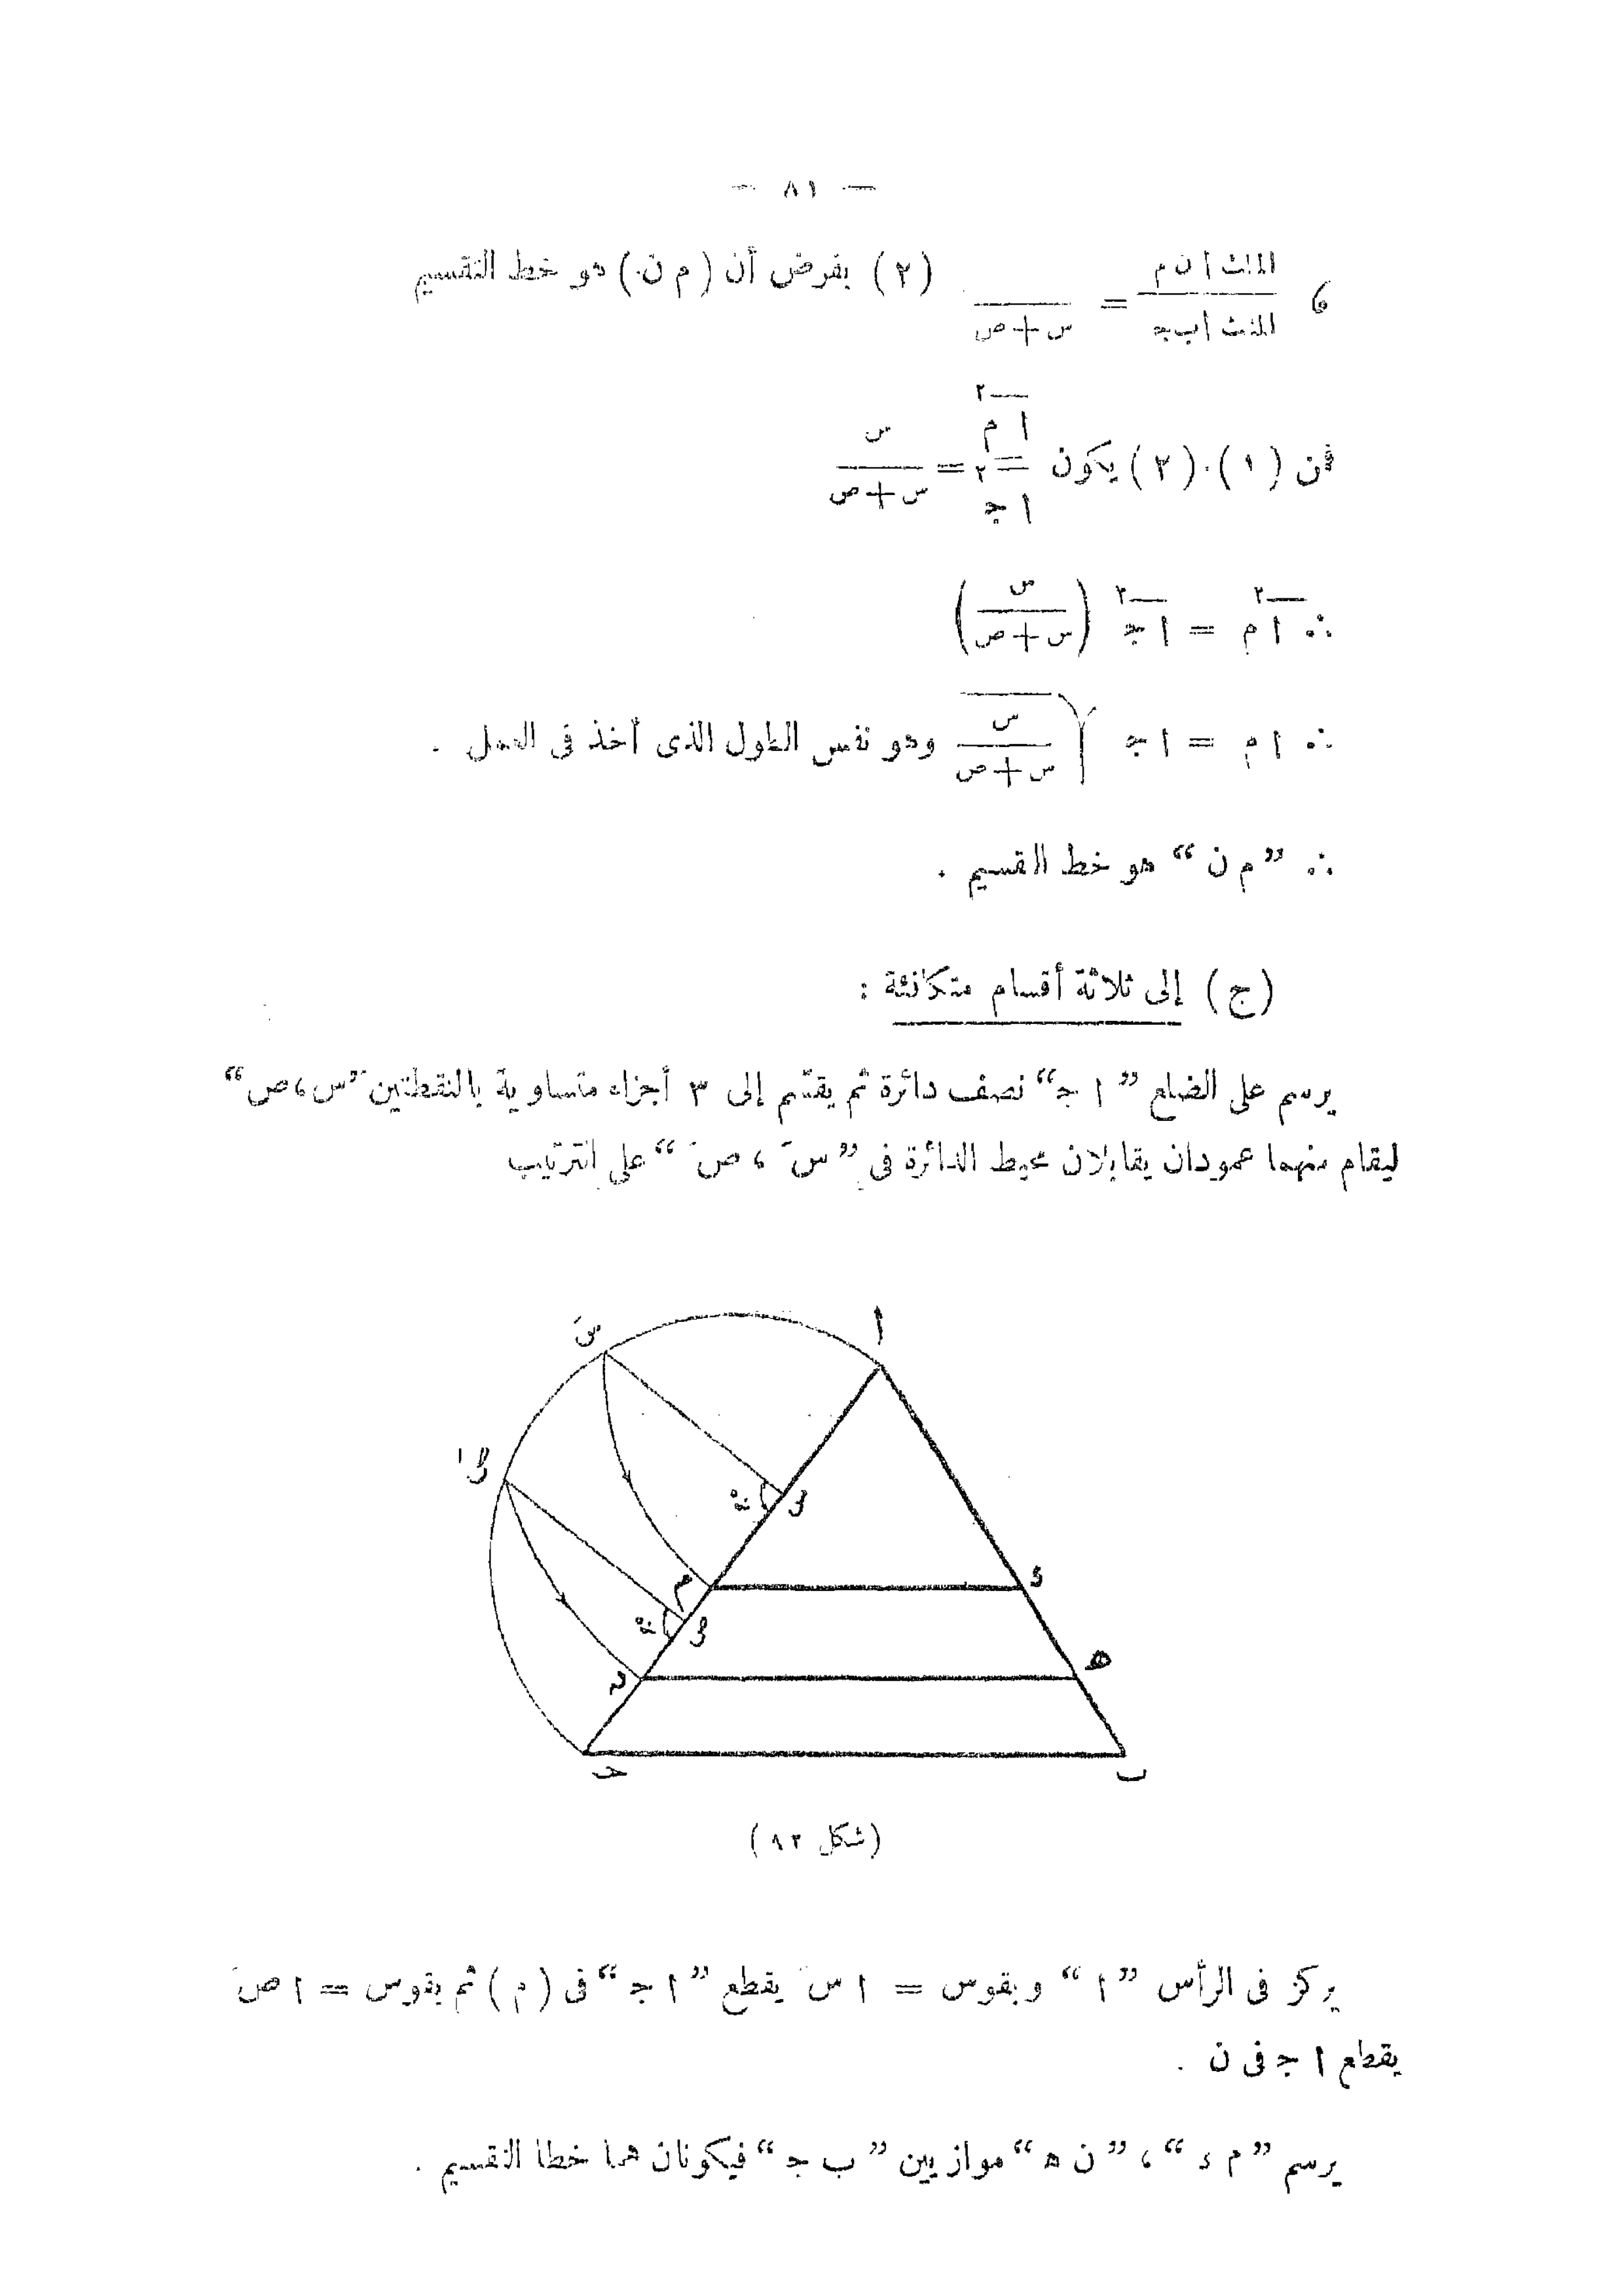 — ٨١ —
6 المثلث ا ن م / المثلث ا ب ج = / س + ص (٢) بفرض أن (م ن) هو خط التقسيم
فمن (١)، (٢) يكون ا م٢ / ا ج٢ = س / س + ص
∴ ا م٢ = ا ج٢ (س / س + ص)
∴ ا م = ا ج √(س / س + ص) وهو نفس الطول الذى أخذ فى العمل .
∴ ”م ن“ هو خط القسيم .
(ج) إلى ثلاثة أقسام متكافئة :
يرسم على الضلع ”ا ج“ نصف دائرة ثم يقسم إلى ٣ أجزاء متساوية بالنقطتين ”س ، ص“
ليقام منهما عمودان يقابلان محيط الدائرة فى ”سَ ، صَ“ على الترتيب
ا
سَ
صَ
س
م
ص
ن
ء
ه
ج
ب
(شكل ٩٢)
يركز فى الرأس ”ا“ وبقوس = ا سَ يقطع ”ا ج“ فى (م) ثم بقوس = ا صَ
يقطع ا ج فى ن .
يرسم ”م ء“ ، ”ن ه“ موازيين ”ب ج“ فيكونان هما خطا التقسيم .